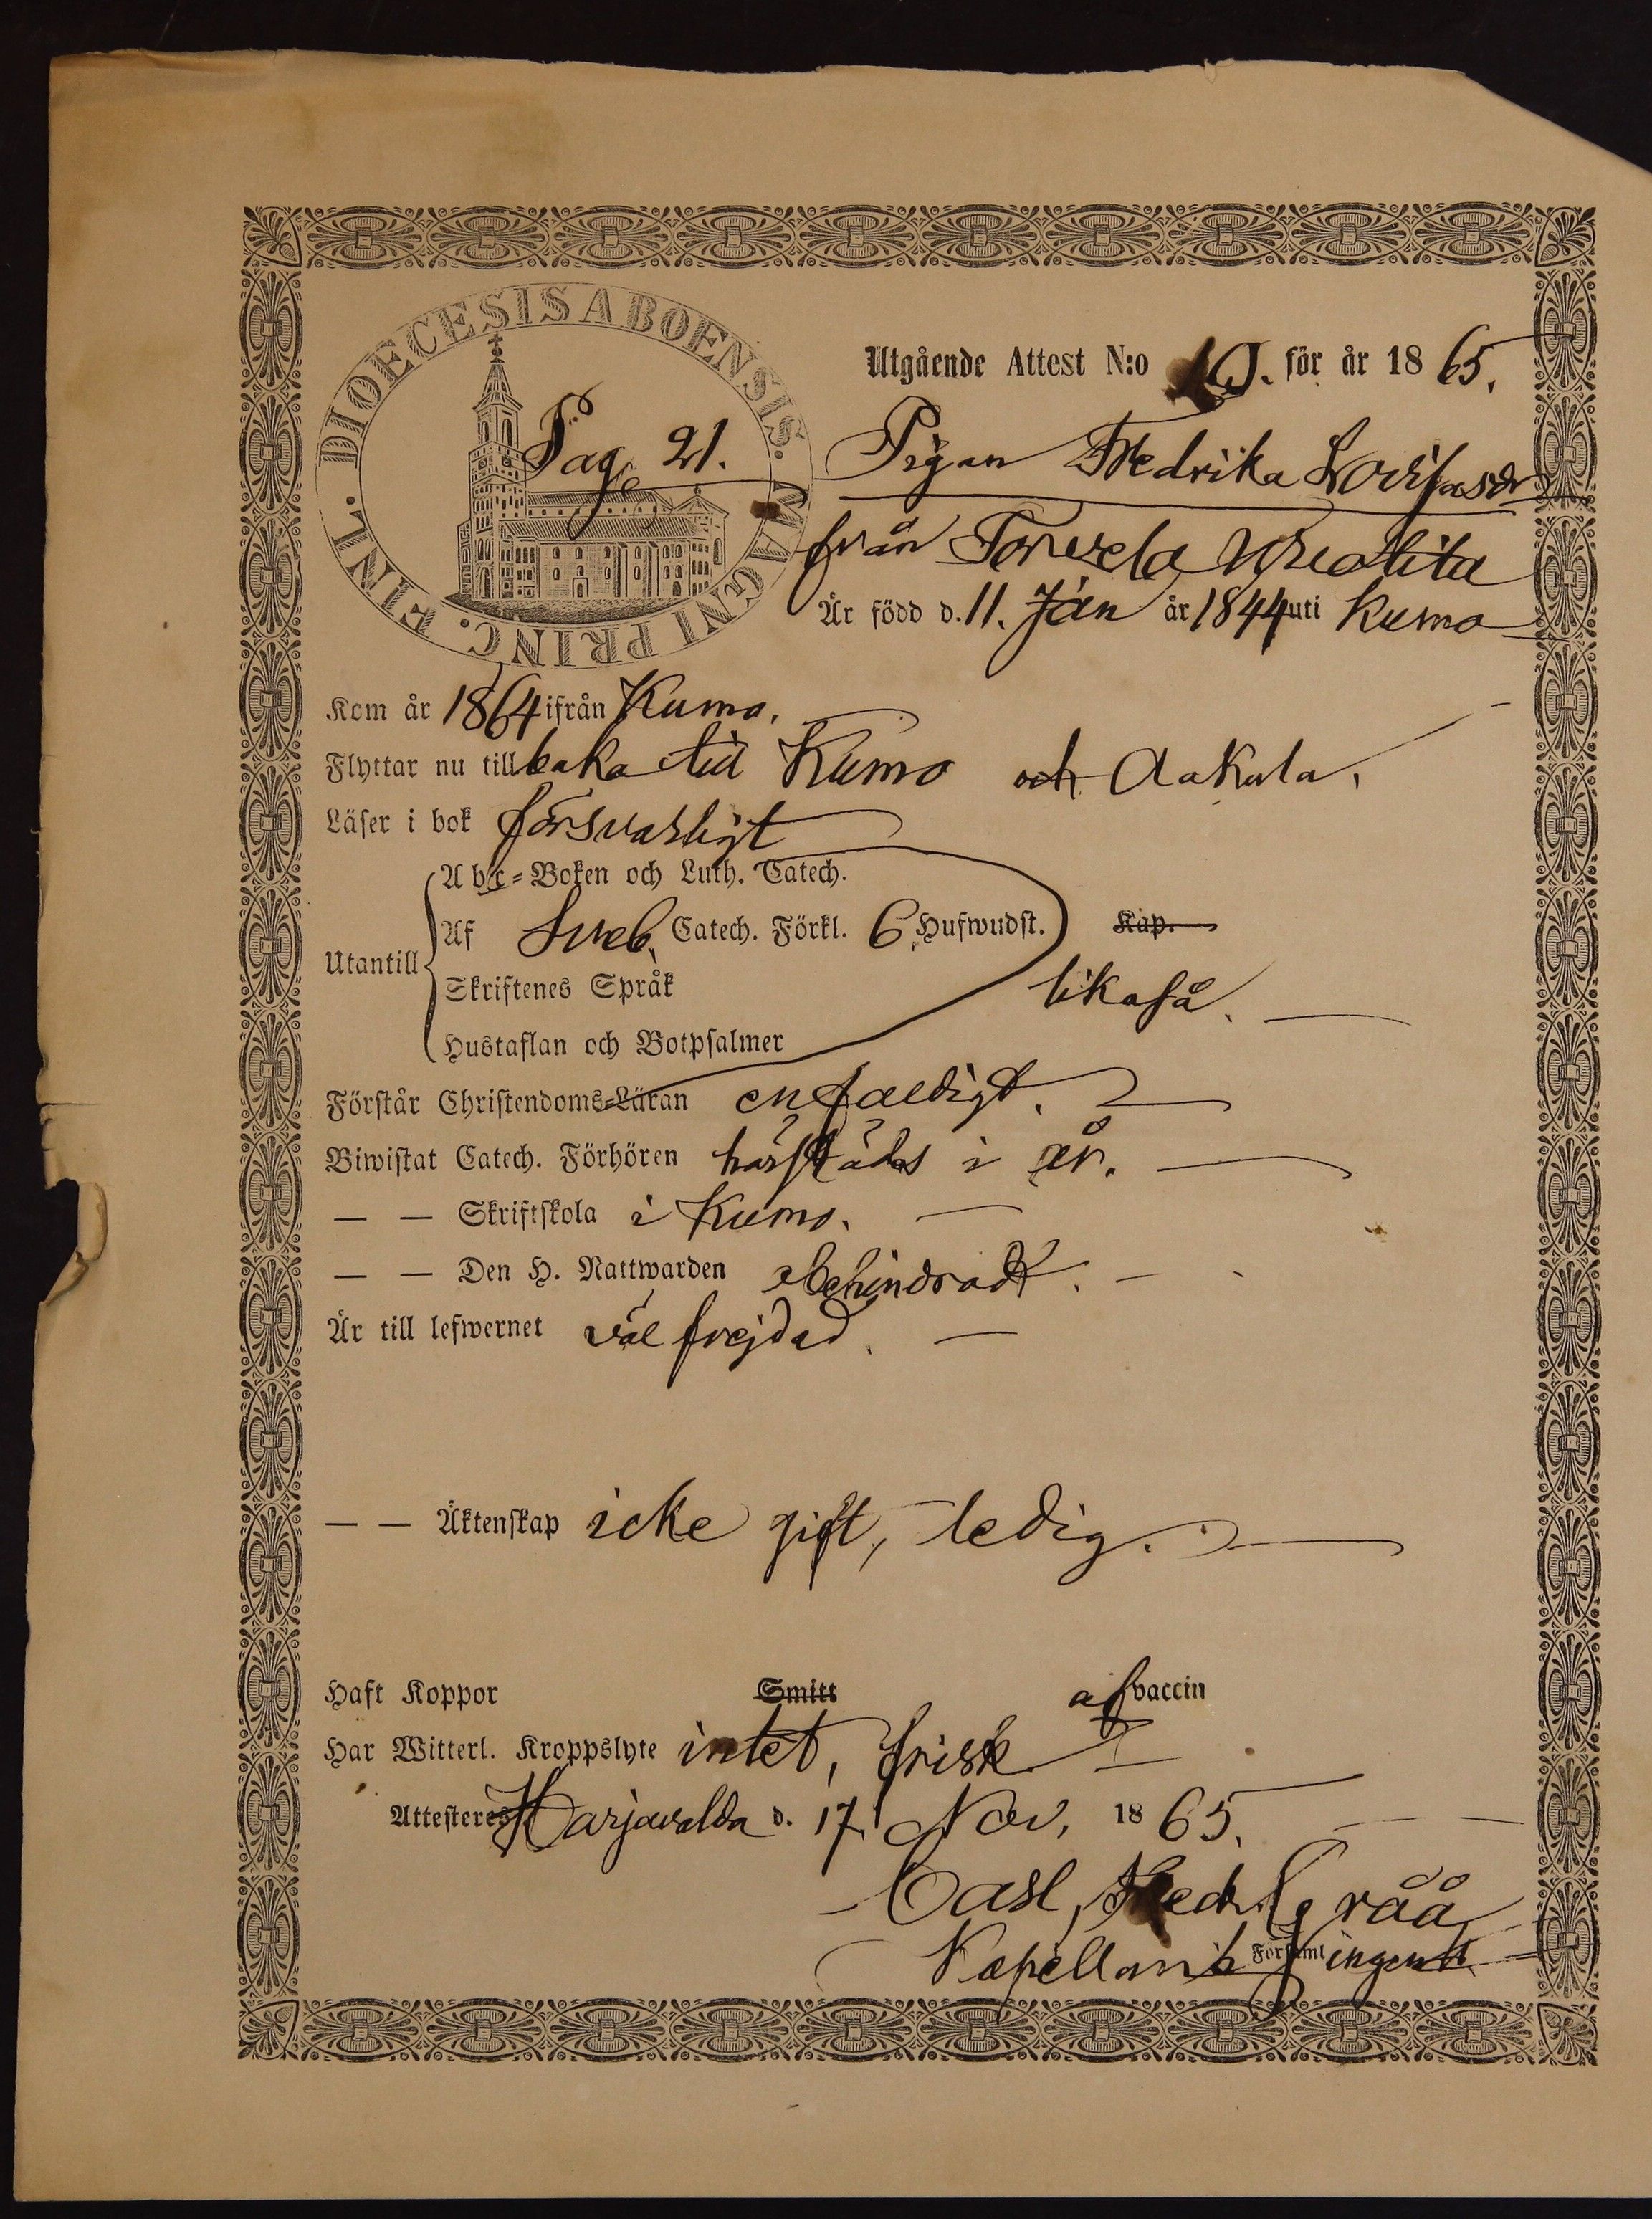 DIOECESIS ABOENSIS. MAGNI PRINC. FINL.
Utgående Attest N:o 10. för år 1865.
Pag. 21.
Pigan Fredrika Lovisasdr
från Torvela
Är född d. 11. Jan år 1844 uti Kumo
Kom år 1864 ifrån Kumo.
Flyttar nu tillbaka till Kumo och Aakula.
Läser i bok försvarligt
Abc-Boken och Luth. Catech.
Utantill
Af Sveb. Catech. Förkl. 6 Hufwudst. Kap.
Skriftenes Språk likaså.
Hustaflan och Botpsalmer
Förstår Christendoms-Läran enfaldigt.
Biwistat Catech. Förhören härstädes i år.
— — Skriftskola i Kumo.
— — Den H. Nattwarden obehindradt.
Är till lefwernet väl frejdad.
— — Äktenskap icke gift, ledig.
Haft Koppor Smitt af vaccin
Har Witterl. Kroppslyte intet, frisk
Attesteres Harjavalda d. 17 Nov. 1865.
Carl Fredr. Gråå
Kapellan i Församlingen